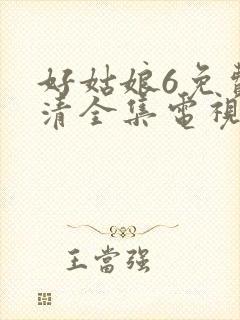 好姑娘6免費
清全集電視
王當强